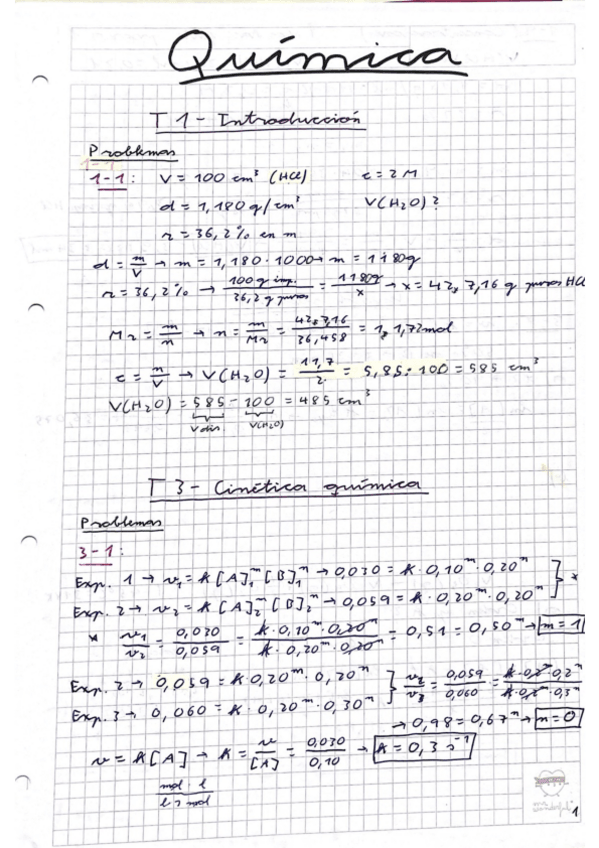 Química
T 1 - Introducción
Problemas
1-1
1-1: V = 100 cm³ (HCl) c = 2 M
d = 1,180 g/cm³ V(H₂O)?
r = 36,2% en m
d = m/V → m = 1,180 · 1000 → m = 1180g
r = 36,2% → 100 g imp. / 36,2 g puros = 1180g / x → x = 42, 7,16 g puros HCl
Mr = m/n → n = m/Mr = 42,7,16 / 36,458 = 1, 1,72 mol
c = n/V → V(H₂O) = 11,7 / 2 = 5,85 · 100 = 585 cm³
V(H₂O) = 585 - 100 = 485 cm³
V dis. V(H₂O)
T 3 - Cinética química
Problemas
3-1:
Exp. 1 → v₁ = k [A]₁ᵐ [B]₁ⁿ → 0,030 = k · 0,10ᵐ · 0,20ⁿ } *
Exp. 2 → v₂ = k [A]₂ᵐ [B]₂ⁿ → 0,059 = k · 0,20ᵐ · 0,20ⁿ
* v₁/v₂ = 0,030 / 0,059 = k · 0,10ᵐ · 0,20ⁿ / k · 0,20ᵐ · 0,20ⁿ = 0,51 = 0,50ᵐ → m = 1
Exp. 2 → 0,059 = k 0,20ᵐ · 0,20ⁿ } v₂/v₃ = 0,059 / 0,060 = k · 0,2ᵐ · 0,2ⁿ / k · 0,2ᵐ · 0,3ⁿ
Exp. 3 → 0,060 = k · 0,20ᵐ · 0,30ⁿ
→ 0,98 = 0,67ⁿ → n = 0
v = k [A] → k = v/[A] = 0,030 / 0,10 → k = 0,3 s⁻¹
mol · l
l s mol
1